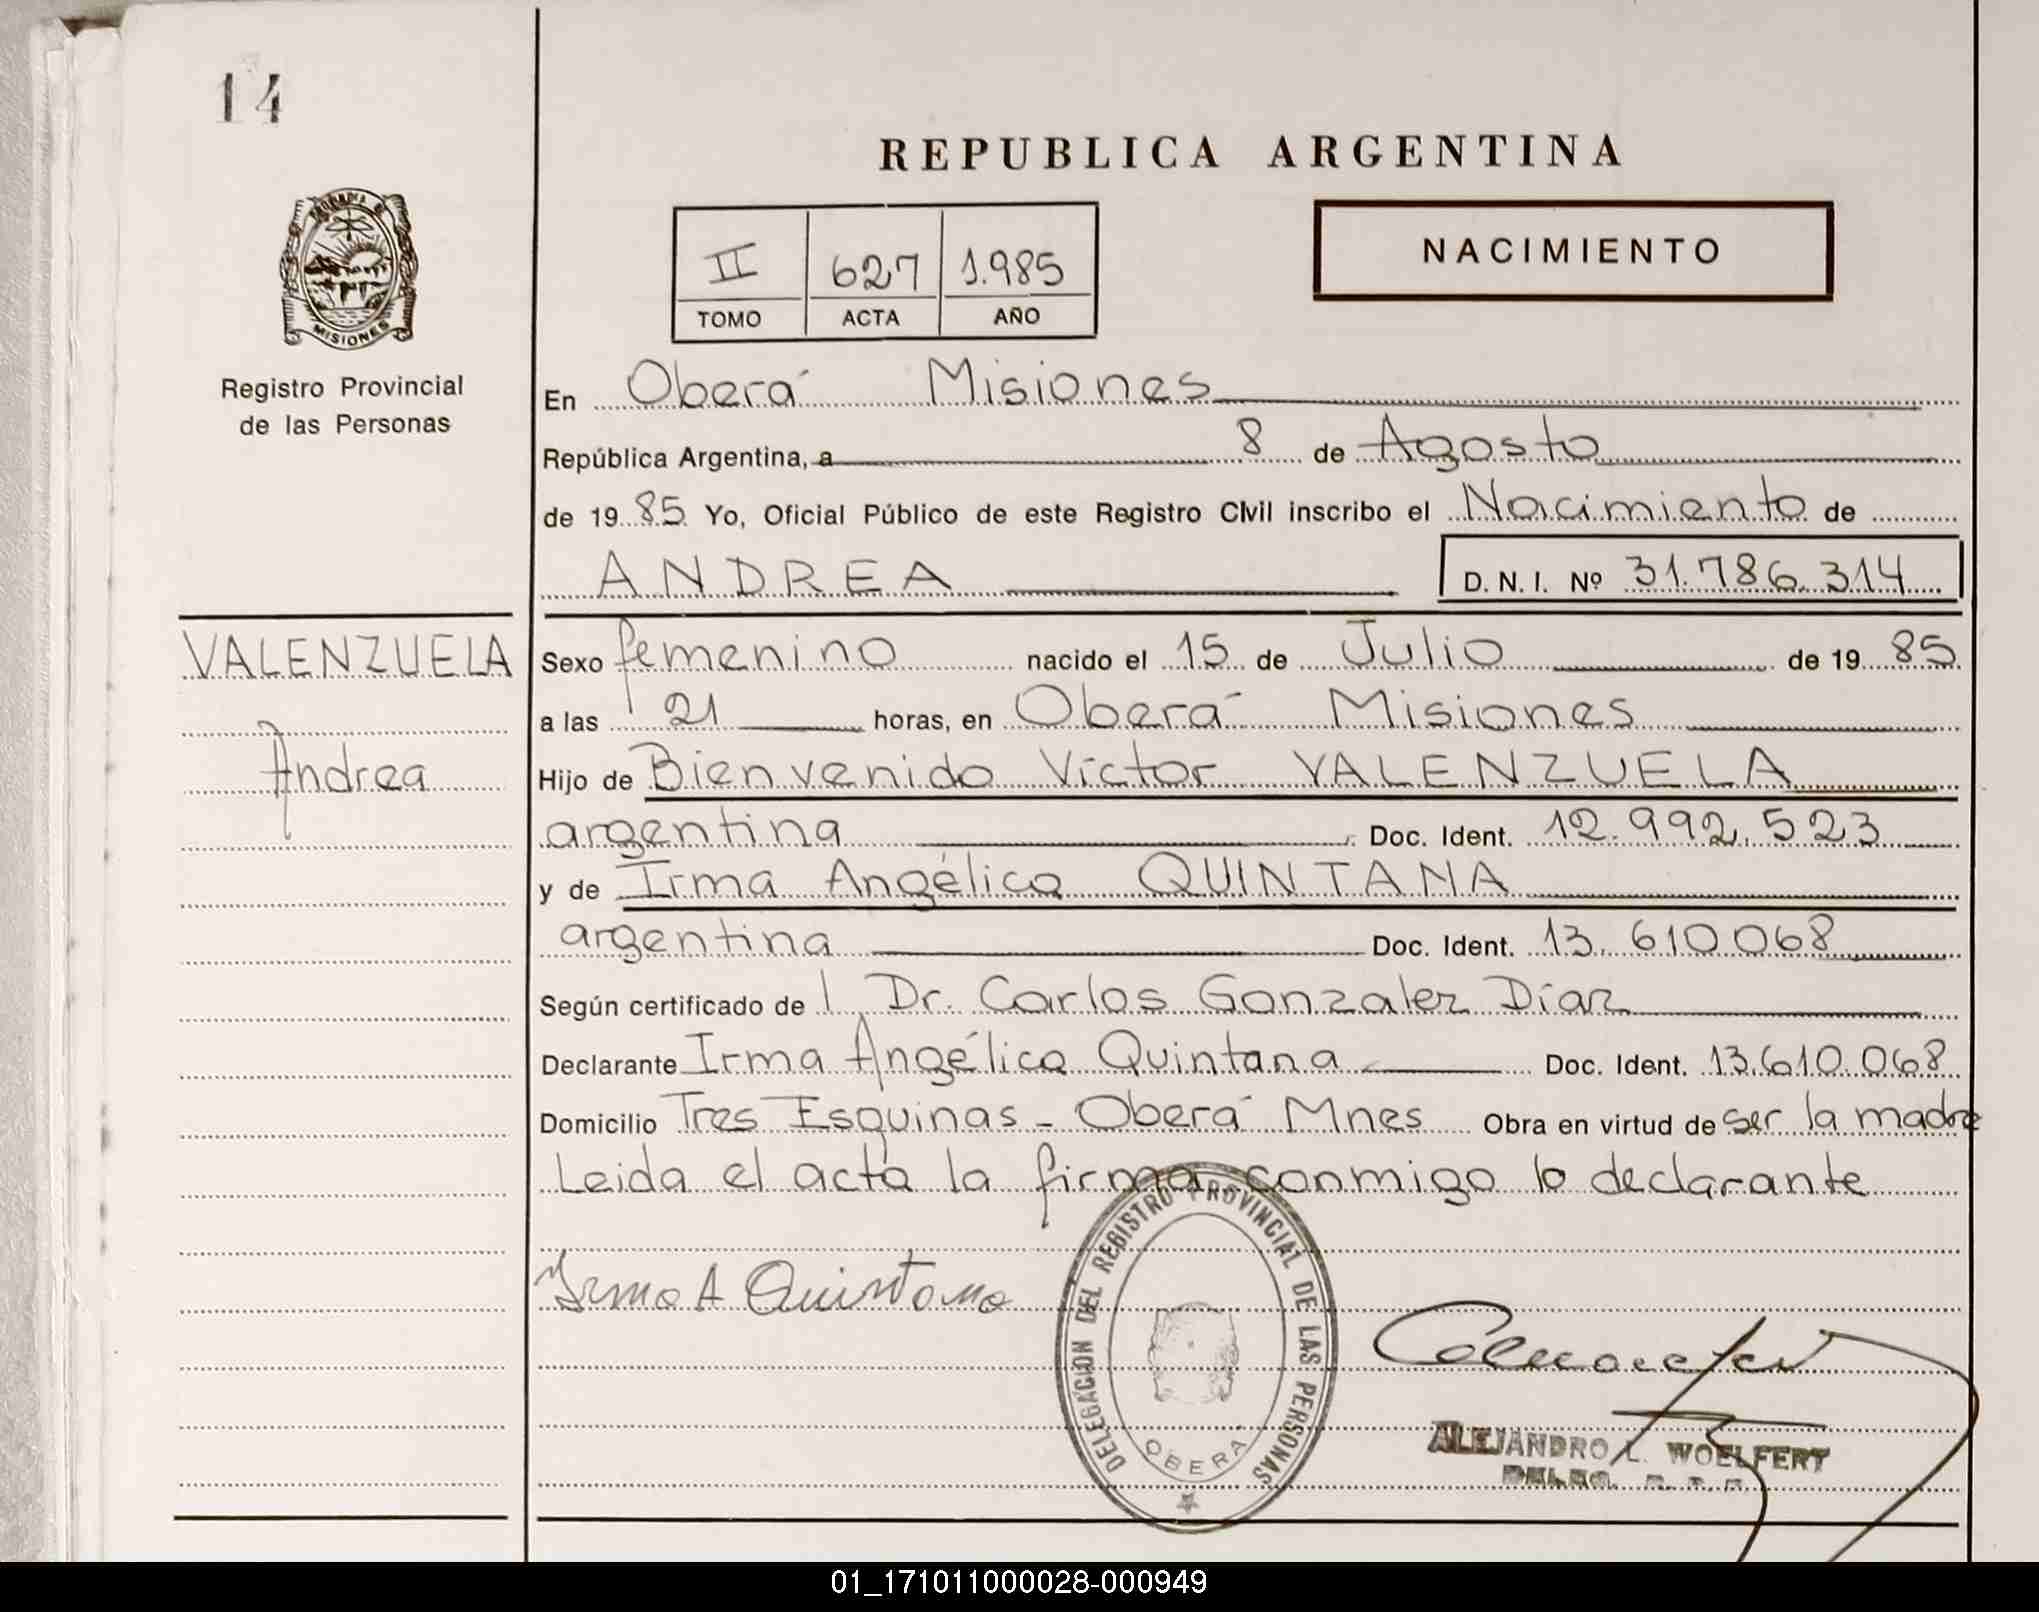 14
REPUBLICA ARGENTINA
NACIMIENTO
II 627 1.985
TOMO ACTA AÑO
MISIONES
Registro Provincial
de las Personas
En Oberá Misiones
República Argentina, a 8 de Agosto
de 19 85 Yo, Oficial Público de este Registro Civil inscribo el Nacimiento de
ANDREA D. N. I. Nº 31.786.314
VALENZUELA
Andrea
Sexo femenino nacido el 15 de Julio de 19 85
a las 21 horas, en Oberá Misiones
Hijo de Bienvenido Víctor VALENZUELA
argentina Doc. Ident. 12.992.523
y de Irma Angélica QUINTANA
argentina Doc. Ident. 13.610068
Según certificado de l Dr. Carlos Gonzalez Díaz
Declarante Irma Angélica Quintana Doc. Ident. 13.610.068
Domicilio Tres Esquinas - Oberá Mnes Obra en virtud de ser la madre
Leida el acta la firma conmigo la declarante
Irma A Quintana
DELEGACION DEL REGISTRO PROVINCIAL DE LAS PERSONAS
OBERA
ALEJANDRO L. WOELFERT
DELEG. R. P. P.
01_171011000028-000949